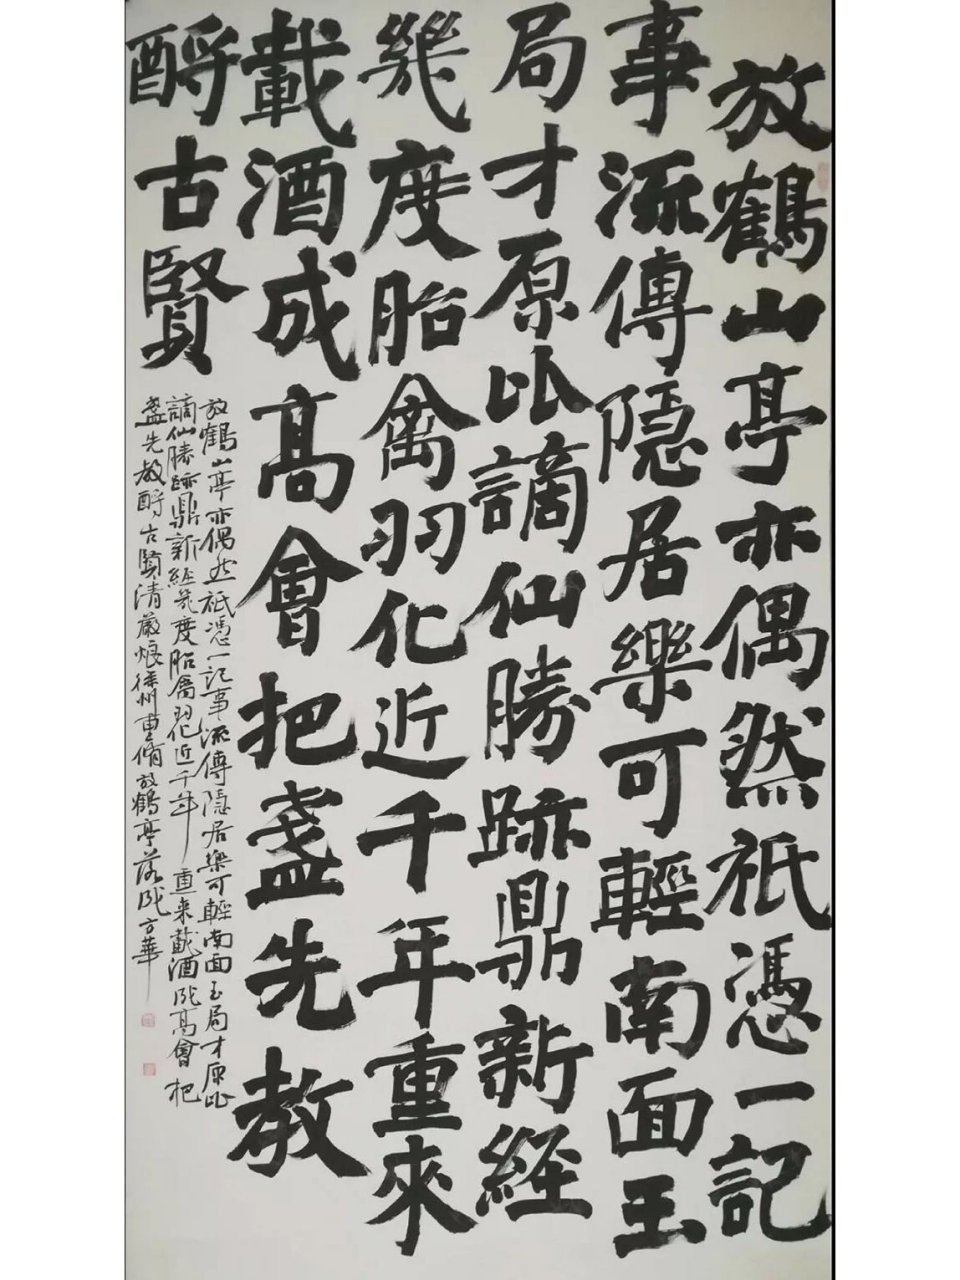 放鶴山亭亦偶然祇憑一記
事流傳隱居樂可輕南面玉
局才原比謫仙勝跡鼎新經
幾度胎禽羽化近千年重來
載酒成高會把盞先教
酹古賢
放鶴山亭亦偶然祇憑一記事流傳隱居樂可輕南面玉局才原比
謫仙勝跡鼎新經幾度胎禽羽化近千年重來載酒成高會把
盞先教酹古賢清嚴烺徐州重脩放鶴亭落成方華